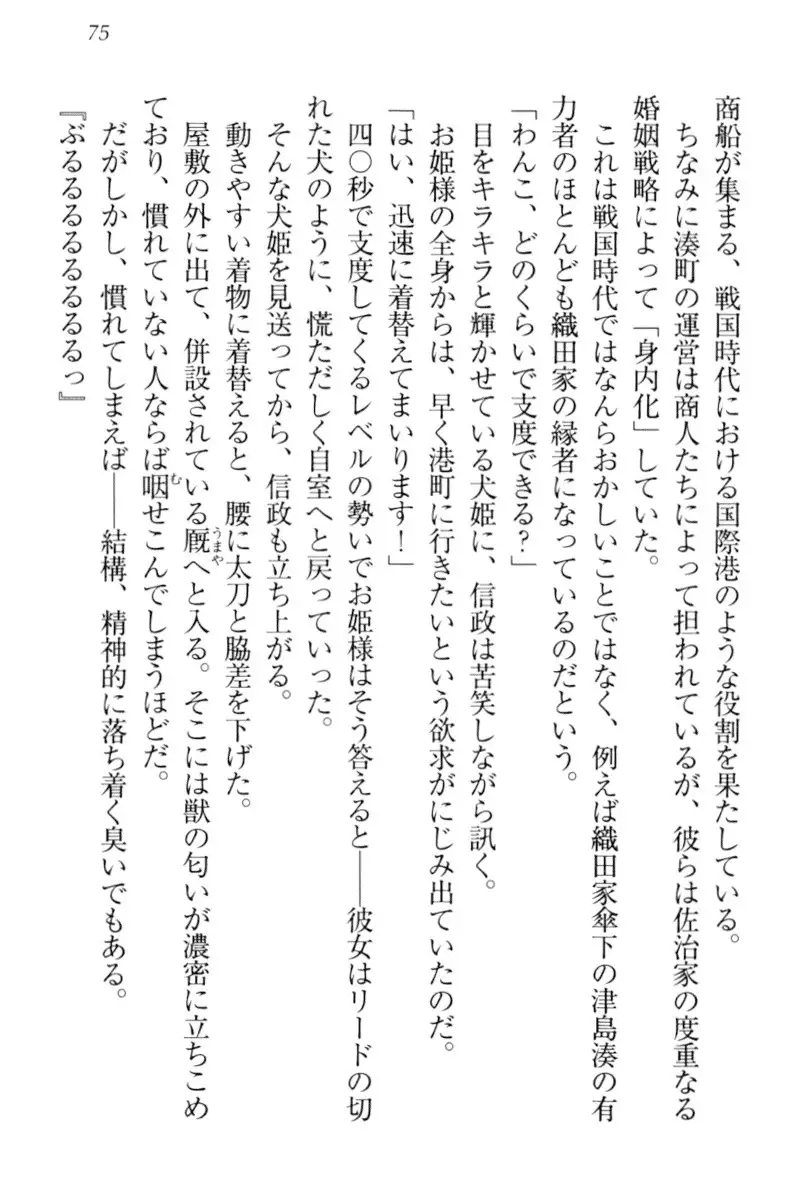 75
商船が集まる、戦国時代における国際港のような役割を果たしている。
ちなみに湊町の運営は商人たちによって担われているが、彼らは佐治家の度重なる
婚姻戦略によって「身内化」していた。
これは戦国時代ではなんらおかしいことではなく、例えば織田家傘下の津島湊の有
力者のほとんども織田家の縁者になっているのだという。
「わんこ、どのくらいで支度できる?」
目をキラキラと輝かせている犬姫に、信政は苦笑しながら訊く。
お姫様の全身からは、早く港町に行きたいという欲求がにじみ出ていたのだ。
「はい、迅速に着替えてまいります!」
四〇秒で支度してくるレベルの勢いでお姫様はそう答えると――彼女はリードの切
れた犬のように、慌ただしく自室へと戻っていった。
そんな犬姫を見送ってから、信政も立ち上がる。
動きやすい着物に着替えると、腰に太刀と脇差を下げた。
屋敷の外に出て、併設されている厩へと入る。そこには獣の匂いが濃密に立ちこめ
うまや
ており、慣れていない人ならば咽せこんでしまうほどだ。
む
だがしかし、慣れてしまえば――結構、精神的に落ち着く臭いでもある。
『ぶるるるるるるるるっ』